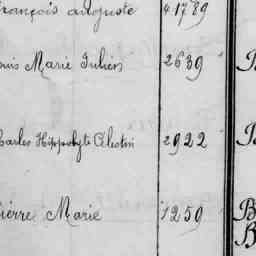 rançois Auguste 41789
ouis Marie Julien 2639
harles Hippolyte Célestin 2922
ierre Marie 1259 B
B